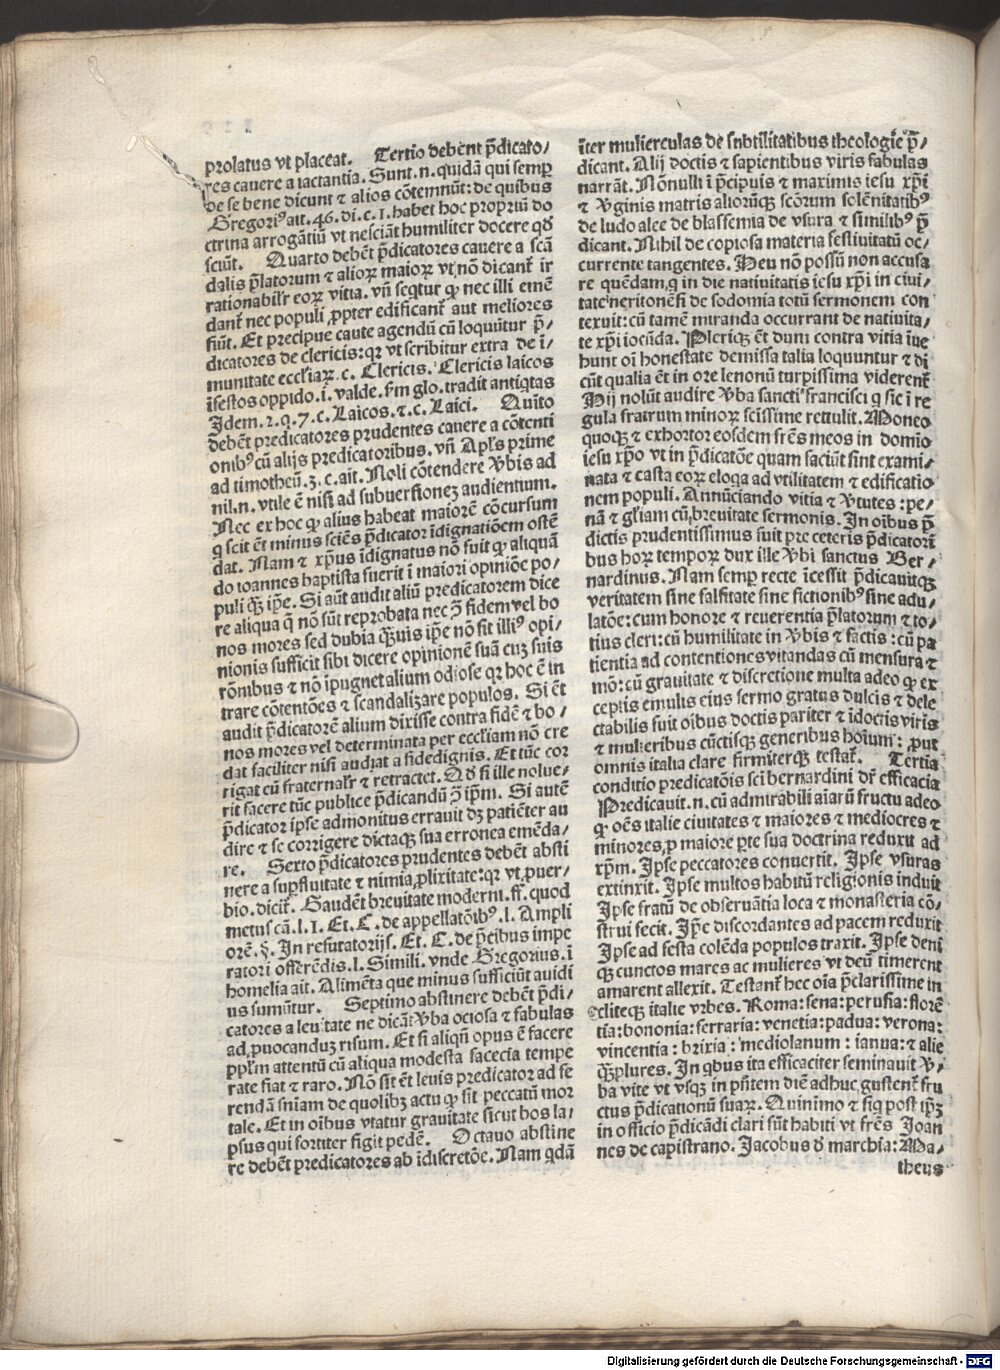 prolatus vt placeat. Tertio debent p̄dicato/
res cauere a iactantia. Sunt.n.quidā qui semꝑ
de se bene dicunt ⁊ alios cōtemnūt: de quibus
Gregoriꝰ ait.46.di.c.1.habet hoc propriū do
ctrina arrogātiū vt nesciāt humiliter docere qd̓
sciūt. Quarto debēt p̄dicatores cauere a scā
dalis p̄latorum ⁊ alioꝝ maioꝝ vt nō dicant̄ ir
rationabilr̄ eoꝝ vitia. vn̄ seqtur ꝙ nec illi emē
dant̄ nec populi ꝓpter edificant̄ aut meliores
fiūt. Et precipue caute agendū cū loquūtur p̄/
dicatores de clericis: qꝛ vt scribitur extra de ī/
munitate eccl̄iaꝝ.c. Clericis. Clericis laicos
īfestos oppido.i.valde.ẜm glo.tradit antiqtas
Idem.2.q.7.c.Laicos.⁊.c.Laici. Quīto
debēt predicatores prudentes cauere a cōtenti
onibꝰ cū alijs predicatoribus. vn̄ Apl̄s prime
ad timotheū.3.c.ait. Noli cōtendere ꝟbis ad
nil.n.vtile ē nisi ad subuersionez audientium.
Nec ex hoc ꝙ alius habeat maiorē cōcursum
q scit ēt minus sciēs p̄dicator īdignatiōem ostē
dat. Nam ⁊ xp̄us īdignatus nō fuit ꝙ aliquā
do ioannes baptista fuerit ī maiori opiniōe po/
puli q̄ꝫ ip̄e. Si aūt audit aliū predicatorem dice
re aliqua q̄ nō sūt reprobata nec ꝯ̄ fidem vel bo
nos mores sed dubia q̄ꝫuis ip̄e nō sit illiꝰ opi/
nionis sufficit sibi dicere opinionē suā cuꝫ suis
rōnibus ⁊ nō īpugnet alium odiose qꝛ hoc ē in
trare cōtentōes ⁊ scandalizare populos. Si ēt
audit p̄dicatorē alium dixisse contra fidē ⁊ bo/
nos mores vel determinata per eccl̄iam nō cre
dat faciliter nisi audiat a fidedignis. Et tūc cor
rigat cū fraternalr̄ ⁊ retractet. Qd̓ si ille nolue/
rit facere tūc publice p̄dicandū ꝯ̄ ip̄m. Si autē
p̄dicator ipse admonitus errauit dꝫ patiēter au
dire ⁊ se corrigere dictaqꝫ sua erronea emēda/
re. Sexto p̄dicatores prudentes debēt absti
nere a suꝑfluitate ⁊ nimia ꝓlixitate: qꝛ vt ꝓuer/
bio.dicit̄. Gaudēt breuitate moderni.ff.quod
metus cā.l.1.Et.C.de appellatōibꝰ.l.Ampli
orē.§.In refutatorijs.Et.C.de p̄cibus impe
ratori offerēdis.l.Simili.vnde Gregorius.ī
homelia ait. Alimēta que minus sufficiūt auidi
us sumūtur. Septimo abstinere debēt p̄di/
catores a leuitate ne dicāt ꝟba ociosa ⁊ fabulas
ad ꝓuocanduꝫ risum. Et si aliqn̄ opus ē facere
ppl̄m attentū cū aliqua modesta facecia tempe
rate fiat ⁊ raro. Nō sit ēt leuis predicator ad se
rendā sniam de quolibꝫ actu ꝙ sit peccatū mor
tale. Et in oībus vtatur grauitate sicut bos la/
psus qui fortiter figit pedē. Octauo abstine
re debēt predicatores ab īdiscretōe. Nam qdā
īter mulierculas de snbtilitatibus theologie p̄/
dicant. Alij doctis ⁊ sapientibus viris fabulas
narrāt. Nōnulli ī p̄cipuis ⁊ maximis iesu xp̄i
⁊ ꝟginis matris aliorūqꝫ scōrum solēnitatibꝰ
de ludo alee de blasfemia de vsura ⁊ similibꝰ p̄
dicant. Nihil de copiosa materia festiuitatū oc/
currente tangentes. Heu nō possū non accusa
re quēdam.q in die natiuitatis iesu xp̄i in ciui/
tate neritonēsi de sodomia totū sermonem con
texuit: cū tamē miranda occurrant de natiuita/
te xp̄i iocūda. Pleriqꝫ ēt dum contra vitia iue
hunt oī honestate demissa talia loquuntur ⁊ di
cūt qualia ēt in ore lenonū turpissima viderent̄
Hij nolūt audire ꝟba sancti francisci q sic ī re
gula fratrum minoꝝ scīssime rettulit. Moneo
quoqꝫ ⁊ exhortor eosdem frēs meos in domīo
iesu xp̄o vt in p̄dicatōe quam faciūt sint exami/
nata ⁊ casta eoꝝ eloqa ad vtilitatem ⁊ edificatio
nem populi. Annūciando vitia ⁊ ꝟtutes: pe/
nā ⁊ gl̄iam cū breuitate sermonis. In oībus p̄
dictis prudentissimus fuit pre ceteris p̄dicatori
bus hoꝝ tempoꝝ dux ille ꝟbi sanctus Ber/
nardinus. Nam semꝑ recte īcessit p̄dicauitqꝫ
veritatem sine falsitate sine fictionibꝰ sine adu/
latōe: cum honore ⁊ reuerentia p̄latorum ⁊ to/
tius cleri: cū humilitate in ꝟbis ⁊ factis: cū pa
tientia ad contentiones vitandas cū mensura ⁊
mō: cū grauitate ⁊ discretione multa adeo ꝙ ex
ceptis emulis eius sermo gratus dulcis ⁊ dele
ctabilis fuit oībus doctis pariter ⁊ īdoctis viris
⁊ mulieribus cūctisqꝫ generibus hoīum: ꝓut
omnis italia clare firmiterqꝫ testat̄. Tertia
conditio predicatōis scī bernardini dr̄ efficacia
Predicauit.n.cū admirabili aīarū fructu adeo
ꝙ oēs italie ciuitates ⁊ maiores ⁊ mediocres ⁊
minores ꝓ maiore ꝑte sua doctrina reduxit ad
xp̄m. Ipse peccatores conuertit. Ipse vsuras
extinxit. Ipse multos habitū religionis induit
Ipse fratrū de obseruātia loca ⁊ monasteria cō/
strui fecit. Ip̄e discordantes ad pacem reduxit
Ipse ad festa colēda populos traxit. Ipse deni
qꝫ cunctos mares ac mulieres vt deū timerent
amarent allexit. Testant̄ hec oīa p̄clarissime in
cliteqꝫ italie vrbes. Roma: sena: perusia: florē
tia: bononia: ferraria: venetia: padua: verona:
vincentia: brixia: mediolanum: ianua: ⁊ alie
q̄ꝫplures. In qbus ita efficaciter seminauit ꝟ/
ba vite vt vsqꝫ in pn̄tem diē adhuc gustent̄ fru
ctus p̄dicationū suaꝝ. Quinimo ⁊ siq post ip̄ꝫ
in officio p̄dicādi clari sūt habiti vt frēs Joan
nes de capistrano. Jacobus d̓ marchia: Ma/
theus
Digitalisierung gefördert durch die Deutsche Forschungsgemeinschaft - DFG